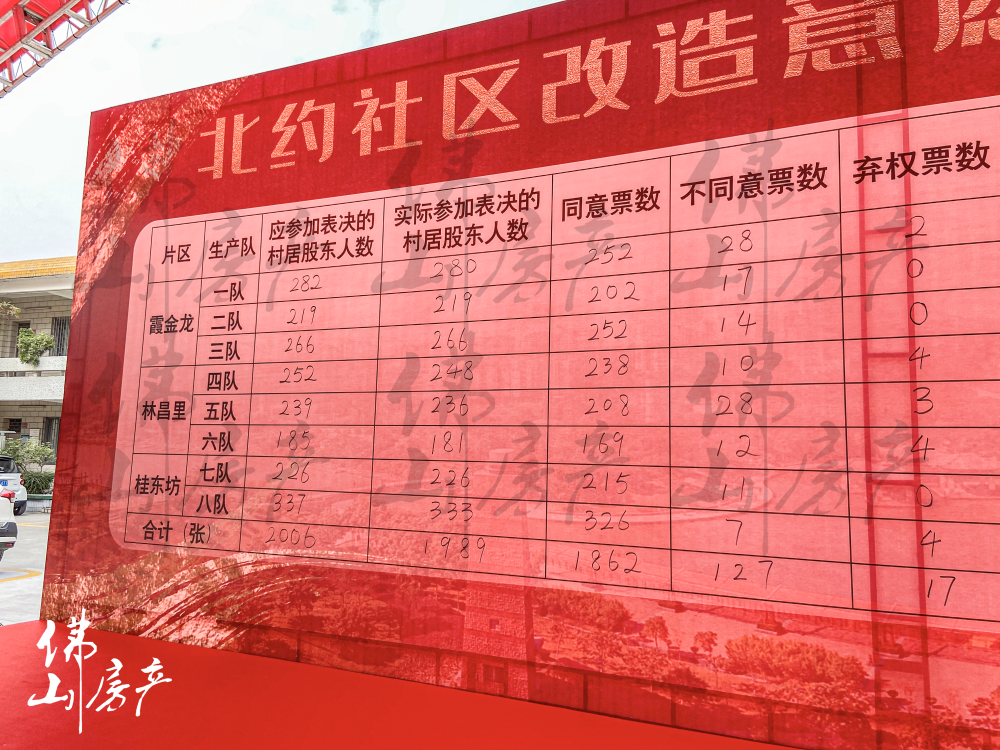 北约社区改造意
片区 生产队 应参加表决的 实际参加表决的 同意票数 不同意票数 弃权票数
村居股东人数 村居股东人数
一队 282 280 252 28 2
霞金龙 二队 219 219 202 17 0
三队 266 266 252 14 0
四队 252 248 238 10 4
林昌里 五队 239 236 208 28 3
六队 185 181 169 12 4
桂东坊 七队 226 226 215 11 0
八队 337 333 326 7 4
合计（张） 2006 1989 1862 127 17
佛山房产